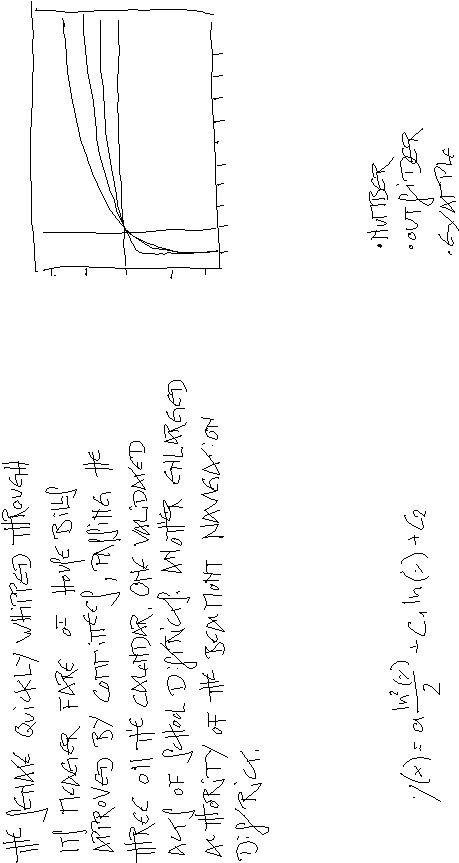 THE SENATE QUICKLY WHIPPED THROUGH
ITS MEAGER FARE OF HOUSE BILLS
APPROVED BY COMMITTEES, PASSING THE
THREE ON THE CALENDAR. ONE VALIDATED
ACTS OF SCHOOL DISTRICTS. ANOTHER ENLARGED
AUTHORITY OF THE BEAUMONT NAVIGATION
DISTRICT.
y(x) = a ln²(x)/2 + C₁ ln(x) + C₂
• NUMBER
• OUTSIDER
• EXAMPLE